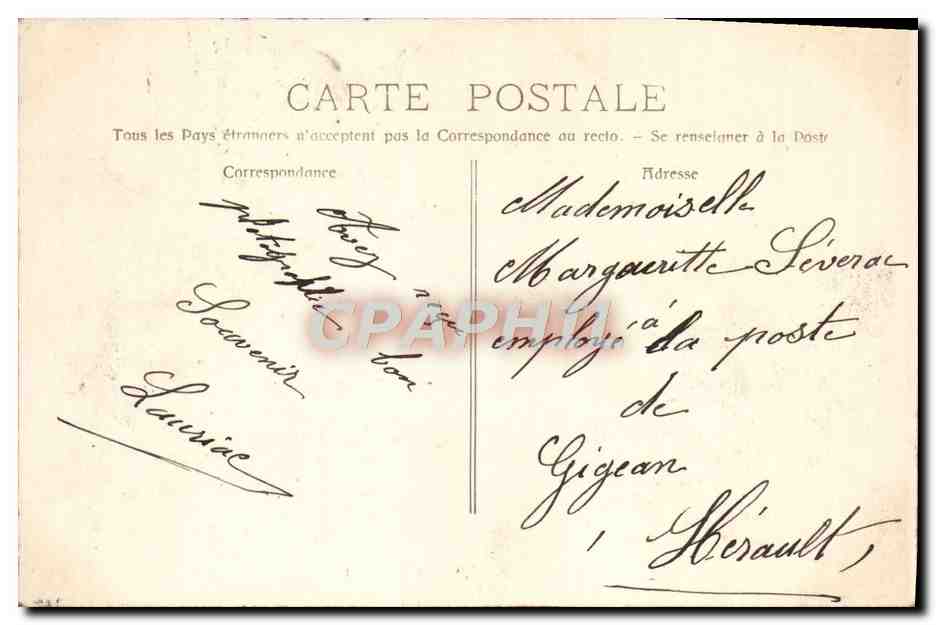 CARTE POSTALE
Tous les Pays étrangers n'acceptent pas la Correspondance au recto. - Se renseigner à la Poste
Correspondance
Avez reçu
photographie
bon
Souvenir
Lauriac
Adresse
Mademoiselle
Margueritte Séverac
employé à la poste
de
Gigean
Hérault,
CPAPHIL